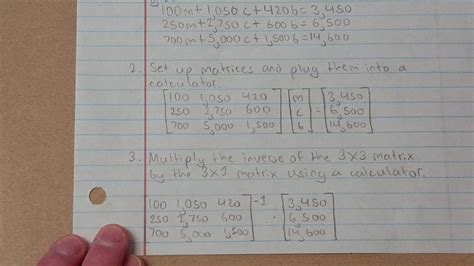 100m+1,050c+420b=3,450
250m+2,750c+600b=6,500
700m+5,000c+1,500b=14,600
2. Set up matrices and plug them into a
calculator.
[100 1,050 420] [m] [3,450]
[250 2,750 600] [c] = [6,500]
[700 5,000 1,500] [b] [14,600]
3. Multiply the inverse of the 3x3 matrix
by the 3x1 matrix using a calculator.
[100 1,050 420]-1 [3,450]
[250 2,750 600] · [6,500]
[700 5,000 1,500] [14,600]